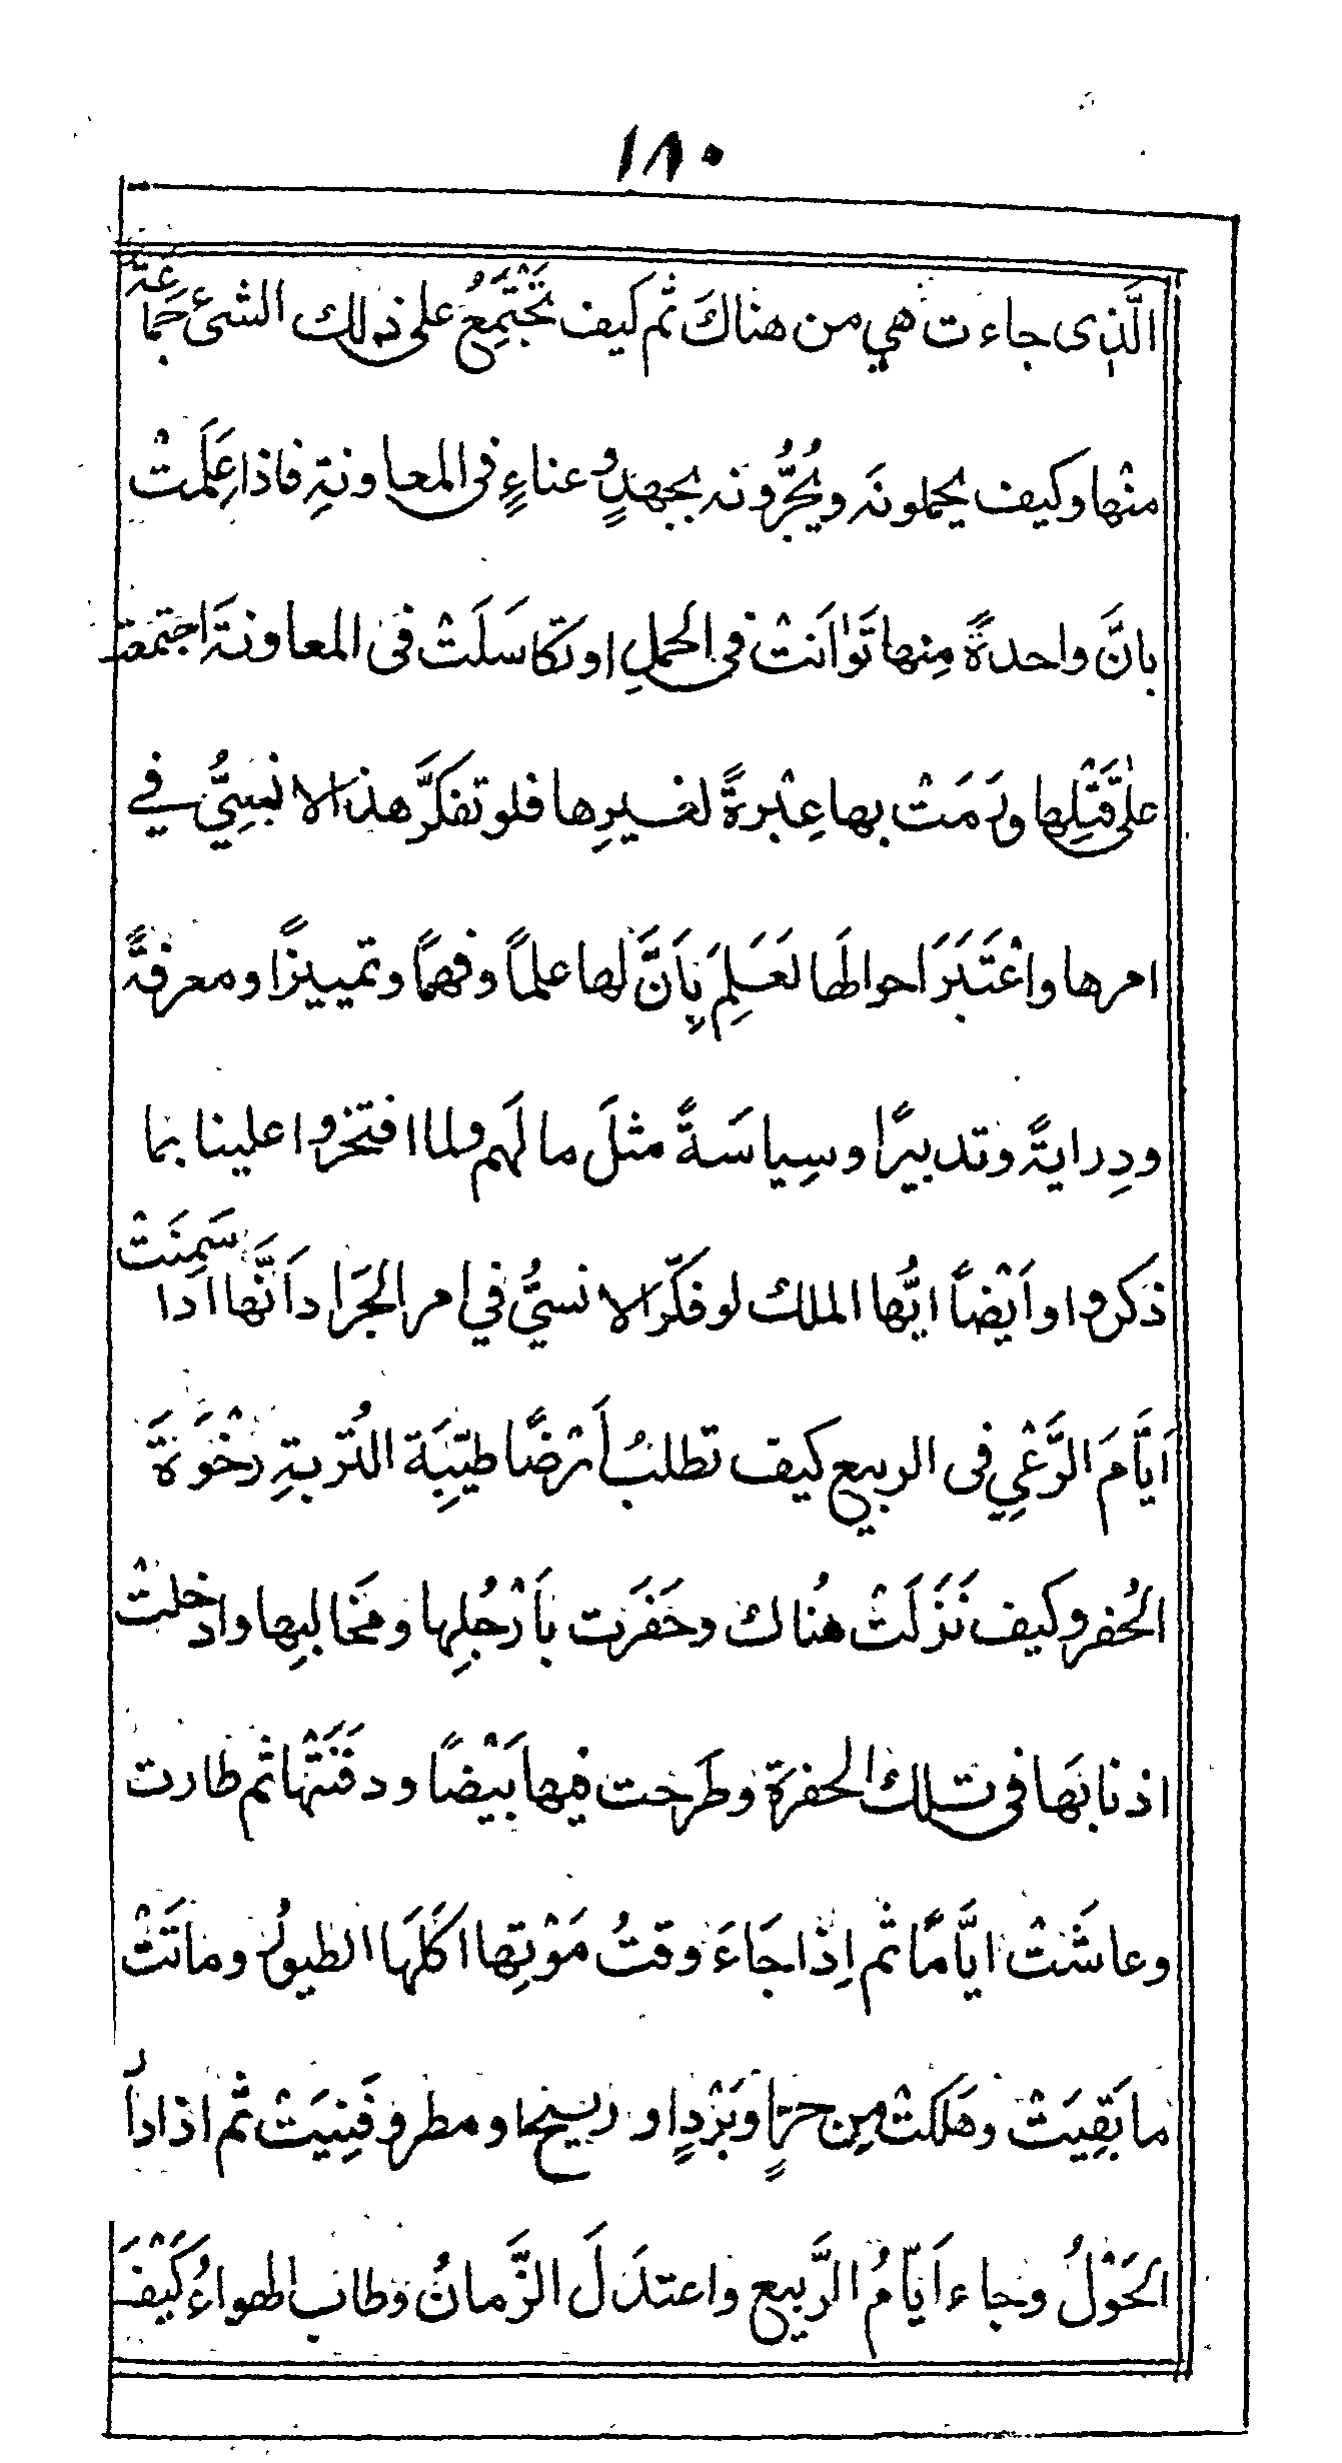 ١٨٠
الَّذِى جاءت هي من هناكَ ثم كيف تَجْتَمِعُ على ذلك الشئ جَمَاعَة
منْها وكيف يحملونَه ويُجُرُّونه بجهدٍ وعناءٍ فى المعاونةِ فاذا عَلِمَتْ
بانَّ واحدةً مِنها تَوٰانَتْ فى الحملِ او تكاسَلَتْ فى المعاونةَ اجتمعت
علىٰ قَتْلِها ورَمَتْ بها عِبْرةً لغيرِها فلو تفكَّر هذا الانسِيُّ في
امرها واعْتَبَرَ احوالَها لَعَلِمَ بِاَنَّ لها علماً وفهمًا وتمييزًا ومعرفةً
ودِرايةً وتدبيرًا وسِياسَةً مثلَ ما لَهم ولما افتخروا علينا بما
ذكروا واَيْضاً ايُّها الملك لو فكّر الانسيُّ في امر الجَرَاد اَنَّها اذا سَمِنَتْ
اَيَّامَ الرَّعْيِ فى الربيع كيف تطلبُ اَرْضًا طيّبَة التُربةِ رَخْوَةَ
الحُفر وكيف نَزَلَتْ هُناك وحَفَرَت باَرْجُلِها ومَخالبِها وادخلت
اذنابَها فى تلك الحفرة وطَرَحت فيها بَيْضًا ودفَنَتْها ثم طارت
وعاشَتْ ايَّامًا ثم اِذا جَاءَ وقتُ مَوْتِها اكَلَهَا الطيورُ وماتَتْ
ما بَقِيَتْ وهَلكَتْ مِن حرٍّ او بَرْدٍ او ريح او مطر وفَنِيَتْ ثم اذا دارَ
الحَوْلُ وجاء اَيّامُ الرَّبيع واعتدَلَ الزَّمانُ وطاب الهواءُ كَيْفَ